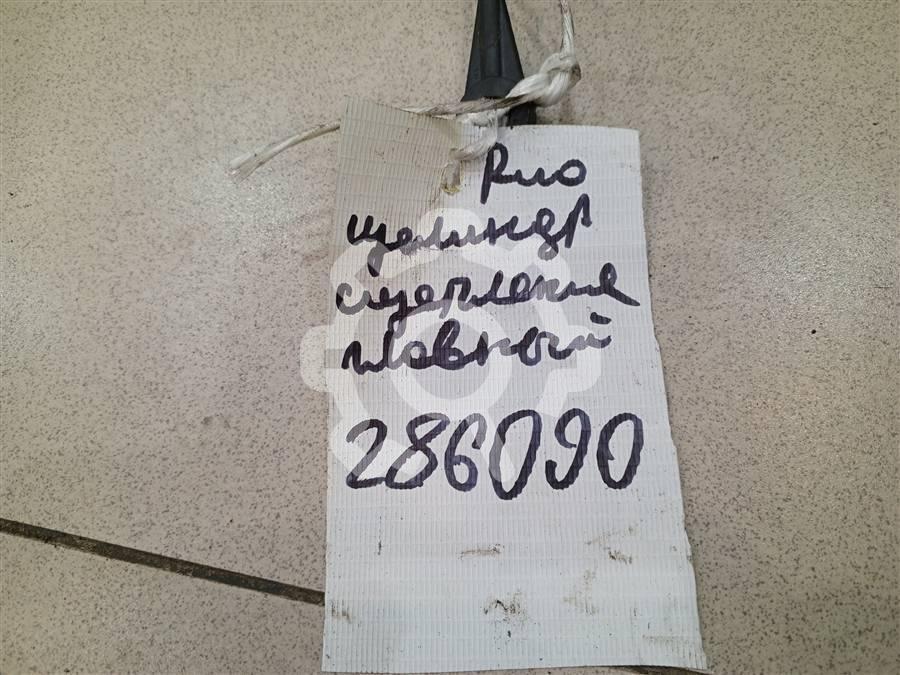 Рио
цилиндр
сцепления
главный
286090